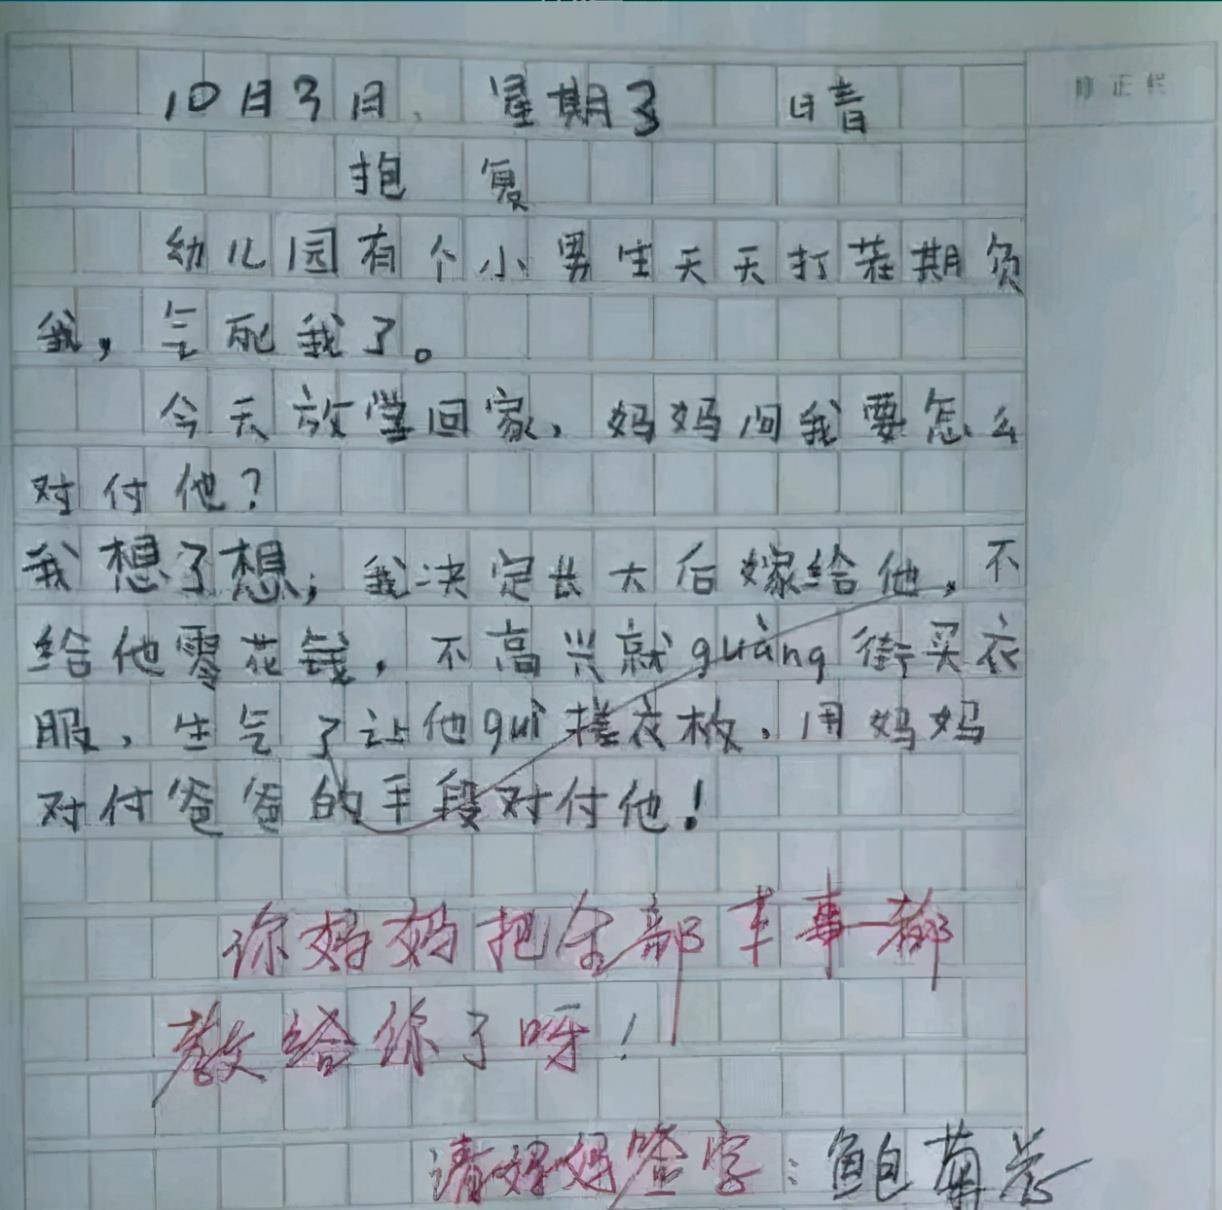 修正栏
10月3日 星期3 晴
抱复
幼儿园有个小男生天天打荘期负
我，气死我了。
今天放学回家，妈妈问我要怎么
对付他？
我想了想，我决定长大后嫁给他，不
给他零花钱，不高兴就guàng街买衣
服，生气了让他guì搓衣板，用妈妈
对付爸爸的手段对付他！
你妈妈把全部本事都
教给你了呀！
请妈妈签字：鲍菊花